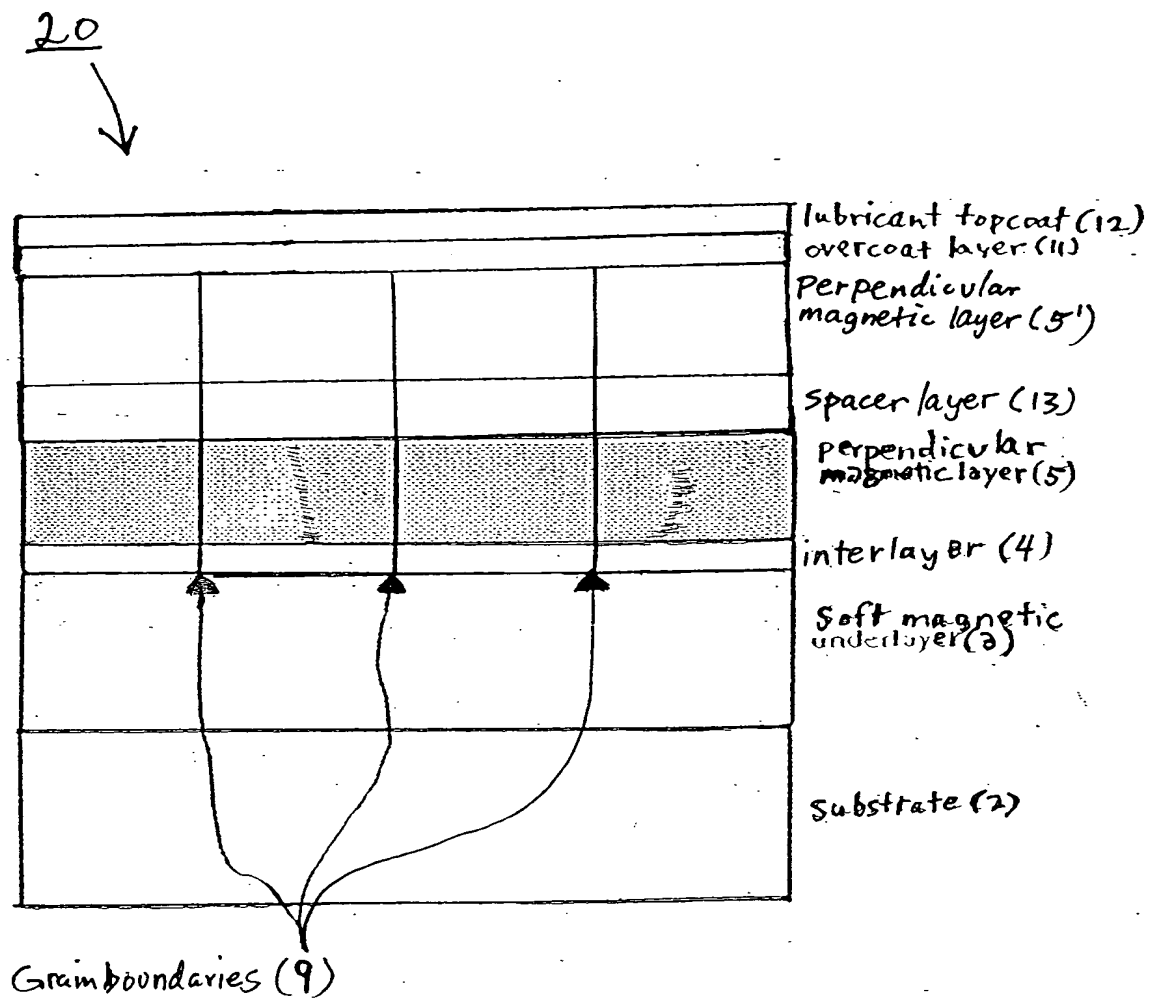 20
lubricant topcoat (12)
overcoat layer (11)
Perpendicular
magnetic layer (5')
spacer layer (13)
perpendicular
magnetic layer (5)
interlayer (4)
Soft magnetic
underlayer (3)
substrate (2)
Grain boundaries (9)